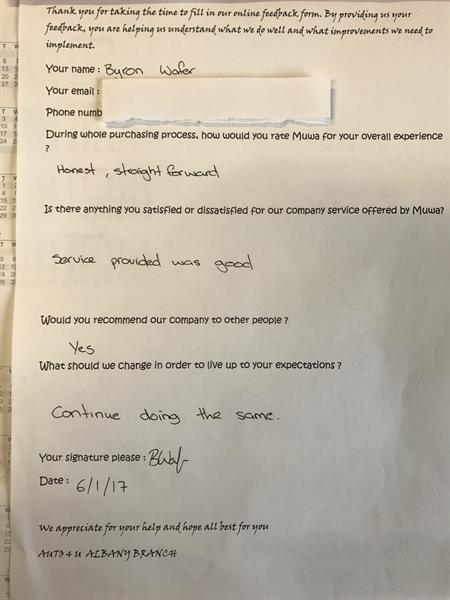 Thank you for taking the time to fill in our online feedback form. By providing us your
feedback, you are helping us understand what we do well and what improvements we need to
implement.
Your name : Byron Wafer
Your email :
Phone numb
During whole purchasing process, how would you rate Muwa for your overall experience
?
Honest , straight forward
Is there anything you satisfied or dissatisfied for our company service offered by Muwa?
Service provided was good
Would you recommend our company to other people ?
Yes
What should we change in order to live up to your expectations ?
Continue doing the same.
Your signature please : BWaf
Date : 6/1/17
We appreciate for your help and hope all best for you
AUTO 4 U ALBANY BRANCH